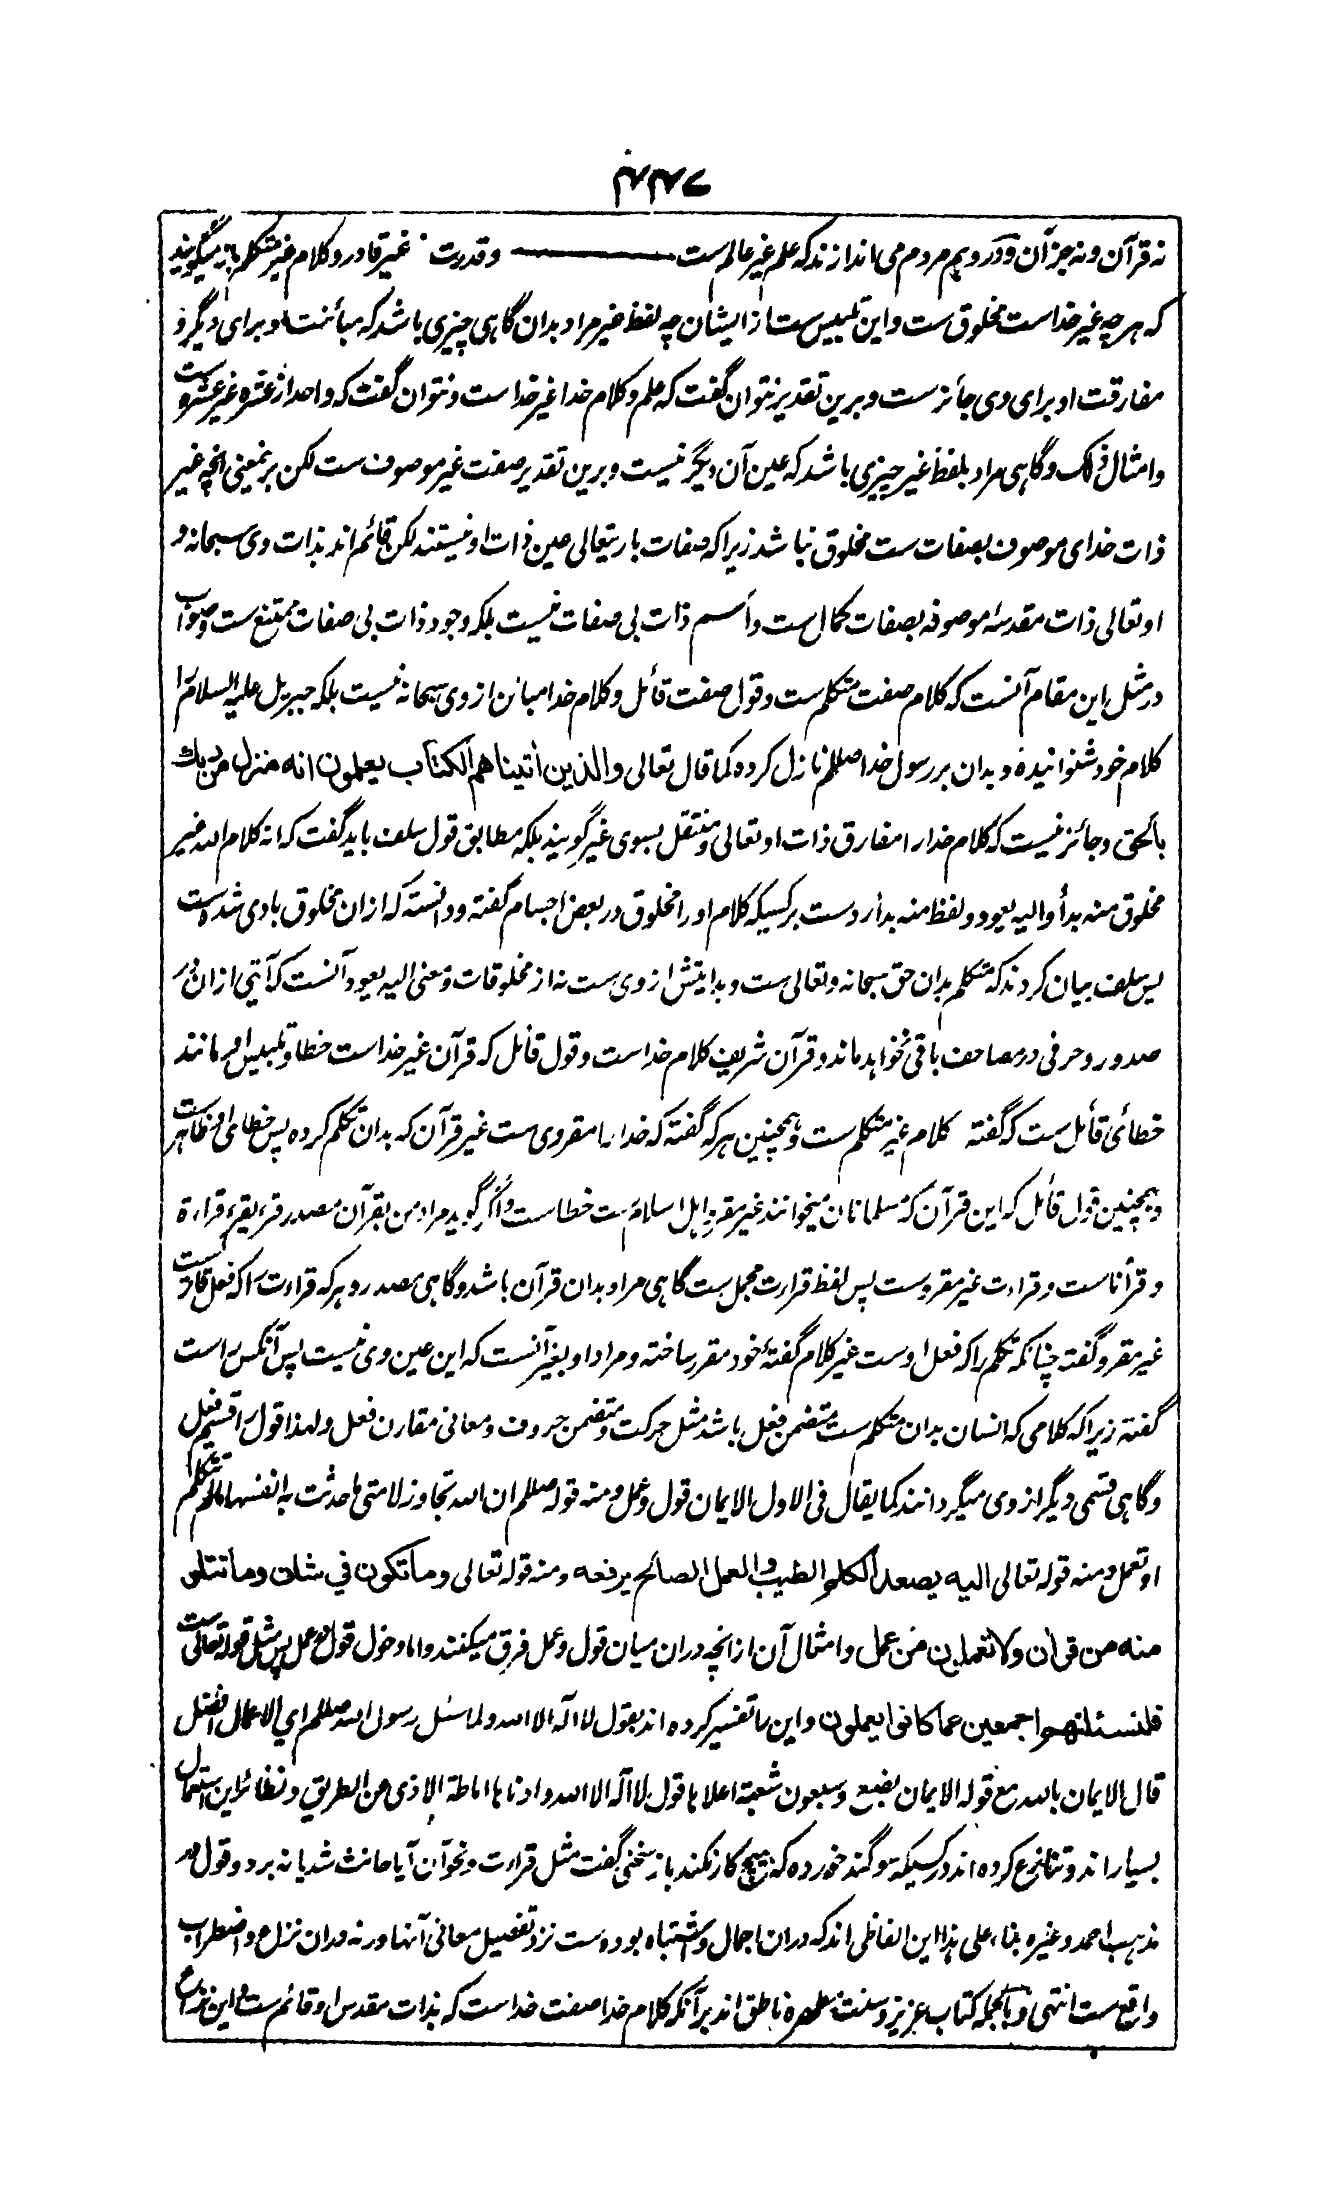 ۴۴۷
نه قرآن و نه جز آن و در وہم مردم می اندازند که علم غیر عالم ست و قدرت غیر قادر و کلام غیر متکلم باز میگویند
که هر چه غیر خداست مخلوق ست و این تلبیس ست از ایشان چه لفظ غیر مراد بدان گاهی چیزی باشد که مبائنت او برای دیگر و
مفارقت او برای وی جائز ست و برین تقدیر نتوان گفت که علم و کلام خدا غیر خداست و نتوان گفت که واحد از عشره غیر عشره است
و امثال ذلک و گاهی مراد بلفظ غیر چیزی باشد که عین آن دیگر نیست و برین تقدیر صفت غیر موصوف ست لکن برینمعنی انچه غیر
ذات خدای موصوف بصفات ست مخلوق نباشد زیرا که صفات باریتعالی عین ذات او نیستند لکن قائم اند بذات وی سبحانه و
او تعالی ذات مقدسه موصوفه بصفات کمال ست و اسم ذات بی صفات نیست بلکه وجود ذات بی صفات ممتنع ست و صواب
در مثل این مقام آنست که کلام صفت متکلم ست و قول صفت قائل و کلام خدا مبائن از وی سبحانه نیست بلکه جبریل علیه السلام را
کلام خود شنوانیده و بدان بر رسول خدا صللم نازل کرده کما قال تعالی والذین اٰتیناهم الکتاب یعلمون انه منزل من ربك
بالحق و جائز نیست که کلام خدا را مفارق ذات او تعالی و منتقل بسوی غیر گویند بلکه مطابق قول سلف باید گفت که انه کلام الله غیر
مخلوق منه بدأ والیه یعود و لفظ منه بدأ رد ست بر کسیکه کلام او را مخلوق در بعض اجسام گفته و دانسته که ازان مخلوق بادی شده است
پس سلف بیان کردند که متکلم بدان حق سبحانه و تعالی ست و بدایتش از وی ست نه از مخلوقات و معنی الیه یعود آنست که آیتی ازان در
صدور و حرفی در مصاحف باقی نخواهد ماند و قرآن شریف کلام خداست و قول قائل که قرآن غیر خداست خطا و تلبیس ست مانند
خطائی قائل ست که گفته کلام غیر متکلم ست و همچنین هر که گفته که خدا را مقروی ست غیر قرآن که بدان تکلم کرده پس خطای او ظاهر ست
و همچنین قول قائل که این قرآن که مسلمانان میخوانند غیر مقرو اهل اسلام ست خطاست و اگر گوید مراد من بقرآن مصدر قرء یقرء قراءة
و قرآنا ست و قراءت غیر مقروست پس لفظ قراءت مجمل ست گاهی مراد بدان قرآن باشد و گاهی مصدر و هر که قراءت را که فعل قاری ست
غیر مقرو گفته چنانکه تکلم را که فعل اوست غیر کلام گفتهٔ خود مقرر ساخته و مراد او بغیر آنست که این عین وی نیست پس آنکس راست
گفته زیرا که کلامی که انسان بدان متکلم ست متضمن فعل باشد مثل حرکت و متضمن حروف و معانی مقارن فعل و لهذا قول را قسیم فعل
و گاهی قسمی دیگر از وی میگردانند کما یقال فی الاول الایمان قول و عمل و منه قوله صللم ان الله تجاوز لامتی ما حدثت به انفسها ما لم تتکلم
او تعمل و منه قوله تعالی الیه یصعد الکلم الطیب والعمل الصالح یرفعه و منه قوله تعالی وما تکون فی شان وما تتلو
منه من قراٰن ولا تعملون من عمل و امثال آن از انچه دران میان قول و عمل فرق میکنند و اما دخول قول در عمل پس مثل قوله تعالی ست
فلنسئلنهم اجمعین عما کانوا یعملون و این را تفسیر کرده اند بقول لا اله الا الله و لما سئل رسول الله صللم ای الاعمال افضل
قال الایمان بالله مع قوله الایمان بضع و سبعون شعبة اعلاها قول لا اله الا الله و ادناها اماطة الاذی عن الطریق و نظائر این استعمال
بسیار اند و تنازع کرده اند در کسیکه سوگند خورده که هیچ کار نکند باز سخنی گفت مثل قراءت و نحو آن آیا حانث شد یا نه بر دو قول در
مذهب احمد و غیره بناء علی هذا این الفاظی اند که دران اجمال و اشتباه بوده ست نزد تفصیل معانی آنها ورنه دران نزاع و اضطراب
واقع ست انتهی و بالجمله کتاب عزیز و سنت مطهره ناطق اند بر آنکه کلام خدا صفت خداست که بذات مقدس او قائم ست و این نزاع